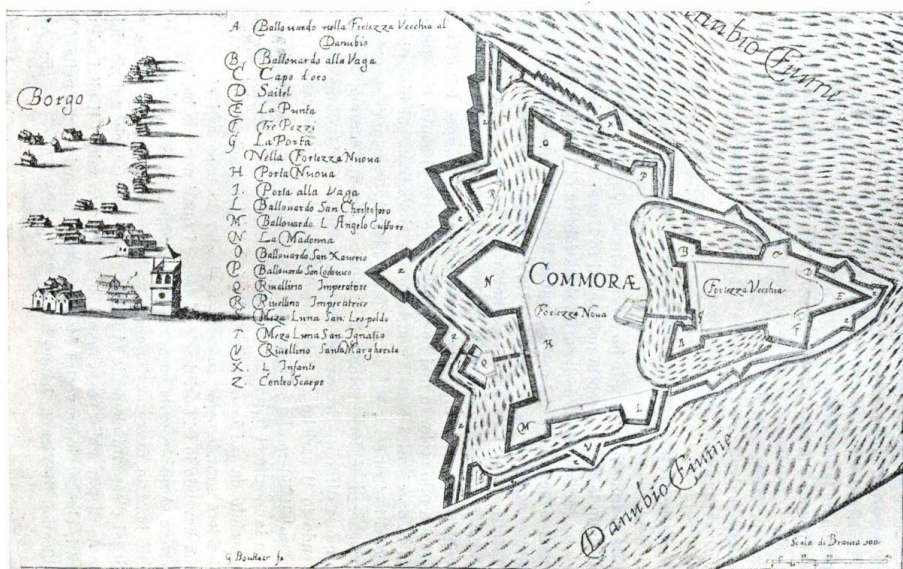 Borgo
A Ballouardo nella Fortezza Vecchia al
Danubio
B Ballouardo alla Vaga
C Capo d'oro
D Saitel
E La Punta
F Tre Pezzi
G La Porta
Nella Fortezza Nuoua
H Porta Nuoua
I. Porta alla Vaga
L Ballouardo San Christoforo
M Ballouardo L Angelo Custore
N La Madonna
O Ballouardo San Xauerio
P. Ballouardo San Lodouico
Q. Riuellino Imperatore
R Riuellino Imperatrice
S Meza Luna San: Leopoldo
T Meza Luna San Ignatio
V Riuellino Santa Margherita
X. L Infante
Z. Contro Scarpe
Danubio Fiume
COMMORÆ
Fortezza Noua
Fortezza Vecchia
Danubio Fiume
G Bouttaer fe
Scala di Braura 100